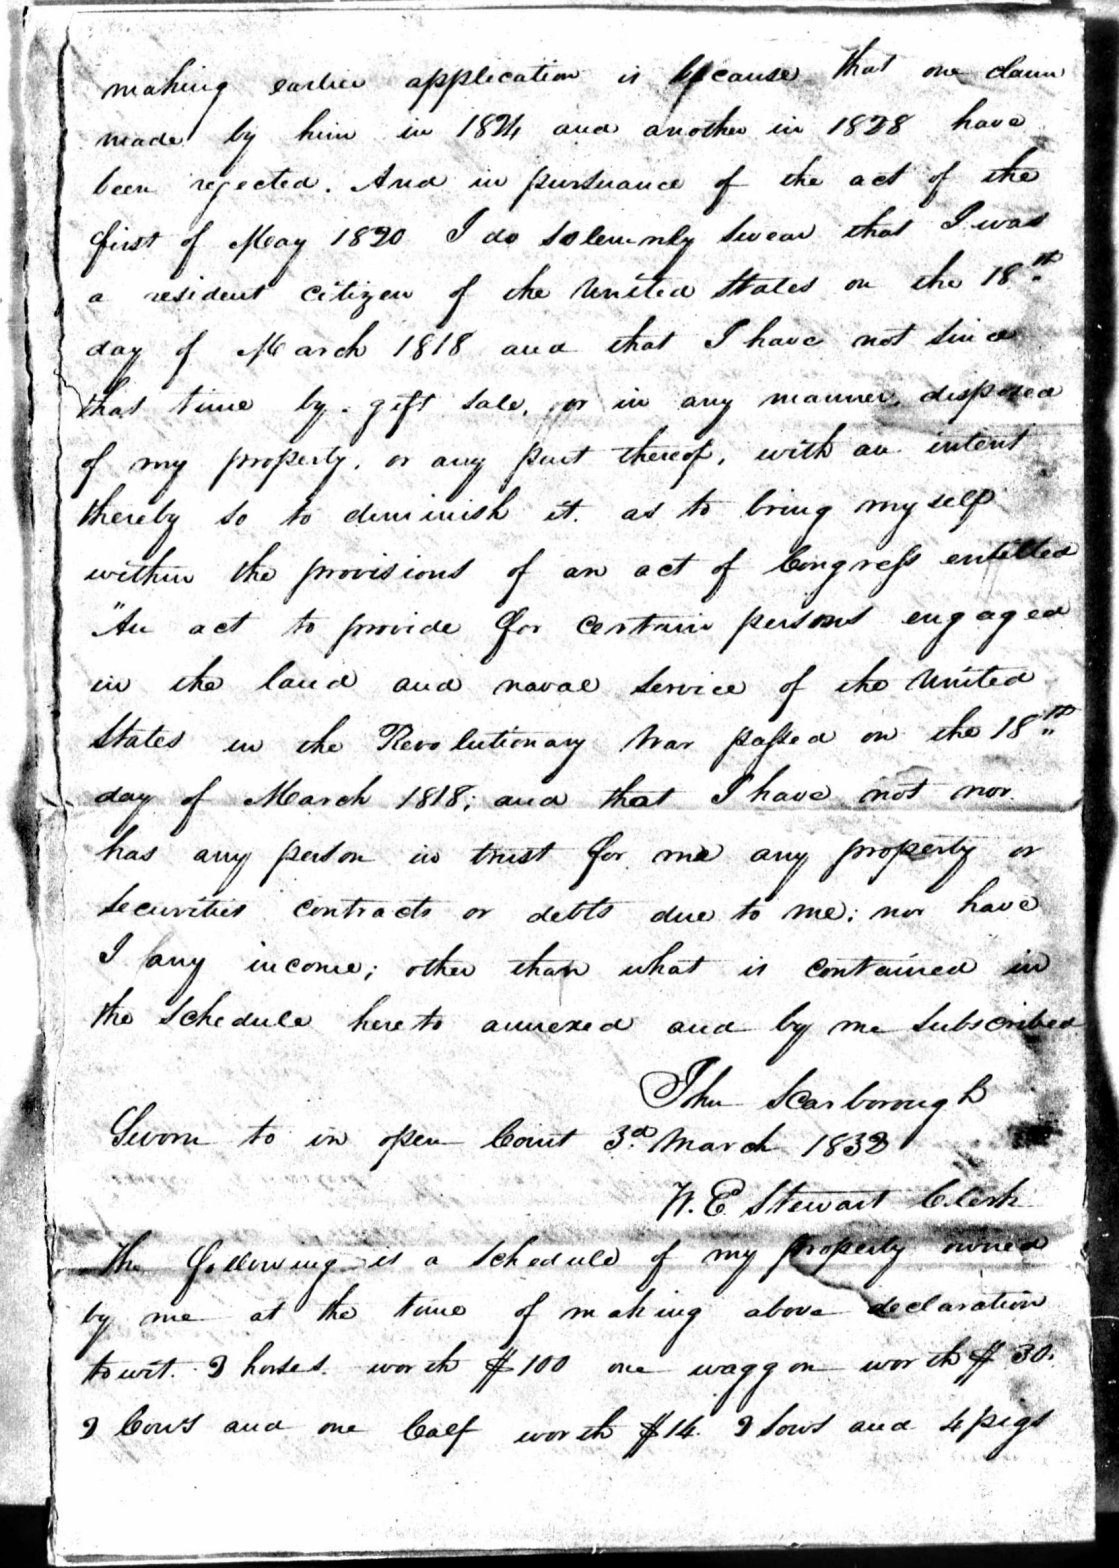 making earlier application is because that one claim
made by him in 1824 and another in 1828 have
been rejected. And in pursuance of the act of the
first of May 1820 I do solemnly swear that I was
a resident citizen of the United States on the 18th
day of March 1818 and that I have not since
that time by gift sale, or in any manner, disposed
of my property, or any part thereof, with an intent
thereby so to diminish it. as to bring myself
within the provisions of an act of Congress entitled
"An act to provide for certain persons engaged
in the land and naval service of the United
States in the Revolutionary War passed on the 18th
day of March 1818; and that I have not nor
has any person in trust for me any property or
securities contracts or debts due to me; nor have
I any income; other than what is contained in
the schedule hereto annexed and by me subscribed
John Scarborough
Sworn to in open Court 3d March 1832
W. E Stewart Clerk
The following is a schedule of my property owned
by me at the time of making above declaration
towit. 2 horses. worth $100 one waggon worth $30.
2 Cows and one Calf worth $14. 2 sows and 4 pigs